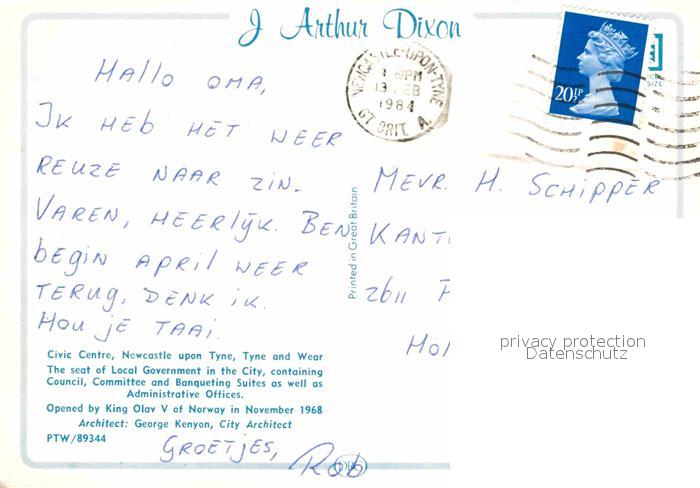 J Arthur Dixon
NEWCASTLE-UPON-TYNE
PM
13 FEB
1984
GT BRIT. A
20½P
SIZE
Hallo oma,
Ik heb het weer
reuze naar zin.
Varen, heerlijk. Ben
begin april weer
terug, denk ik.
Hou je taai.
Civic Centre, Newcastle upon Tyne, Tyne and Wear
The seat of Local Government in the City, containing
Council, Committee and Banqueting Suites as well as
Administrative Offices.
Opened by King Olav V of Norway in November 1968
Architect: George Kenyon, City Architect
PTW/89344
Groetjes,
Rob
Printed in Great Britain
Mevr. H. Schipper
2611
privacy protection
Datenschutz